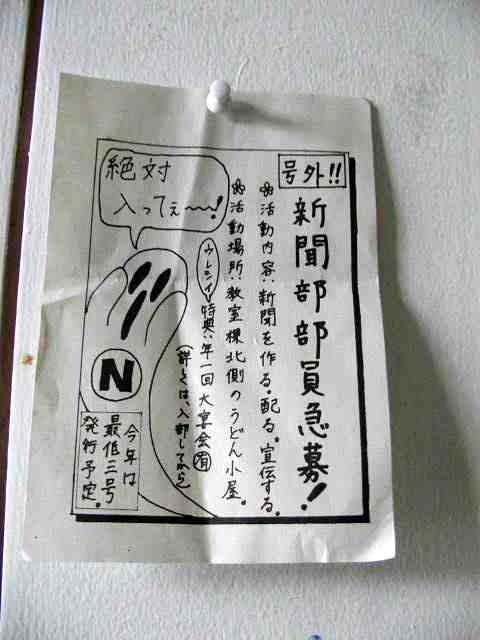 号外!!
新聞部部員急募!
✽活動内容:新聞を作る。配る。宣伝する。
✽活動場所:教室棟北側のうどん小屋。
ウレシイ 特典:年一回 大宴会有
(詳しくは、入部してから)
絶対
入ってぇ〜〜!
N
今年は
最低三号
発行予定。